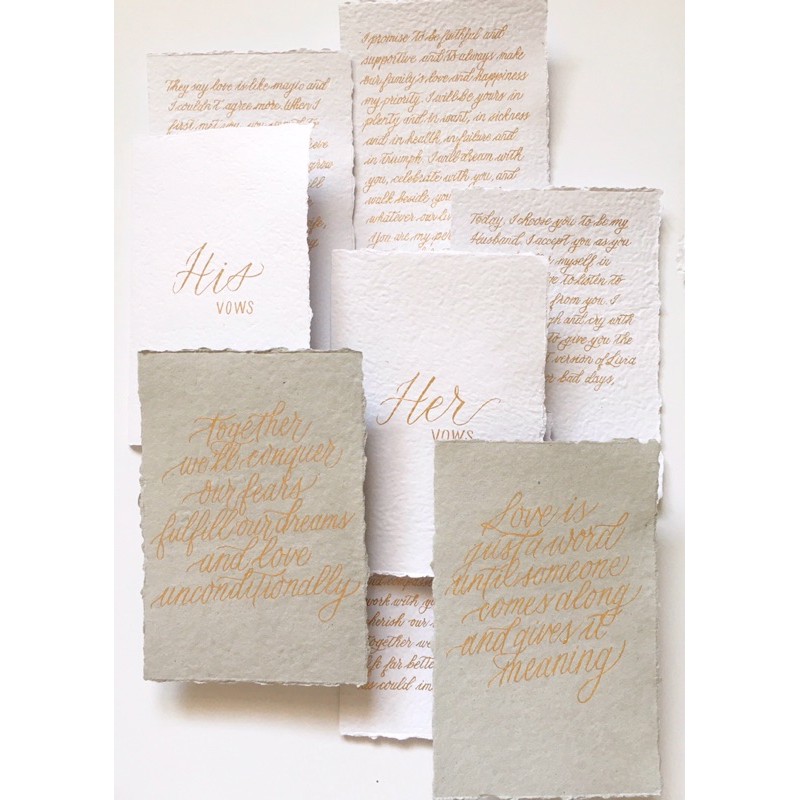 They say love is like magic and
I couldn't agree more. When I
first met you, you
grow
I promise to be faithful and
supportive and to always make
our family's love and happiness
my priority. I will be yours in
plenty and in want, in sickness
and in health, in failure and
in triumph. I will dream with
you, celebrate with you, and
walk beside you
whatever our
You are my
Today, I choose you to be my
Husband. I accept you as you
myself in
to listen to
from you. I
and cry
to give you the
version of
bad days,
His
VOWS
Her
VOWS
together
we'll conquer
our fears
fulfill our dreams
and love
unconditionally
work with
cherish our
together we
life far better
could im
Love is
just a word
until someone
comes along
and gives it
meaning